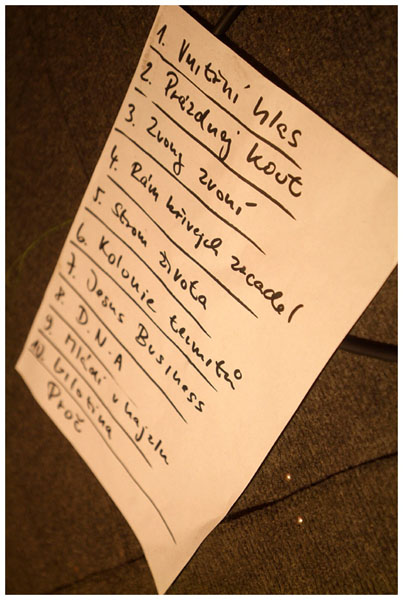 1. Vnitřní hlas
2. Prázdnej kout
3. Zvony zvoní
4. Rám křivejch zrcadel
5. Strom života
6. Kolonie termitů
7. Jesus Business
8. D.N.A
9. Mládí v hajzlu
10. Gilotina
Proč